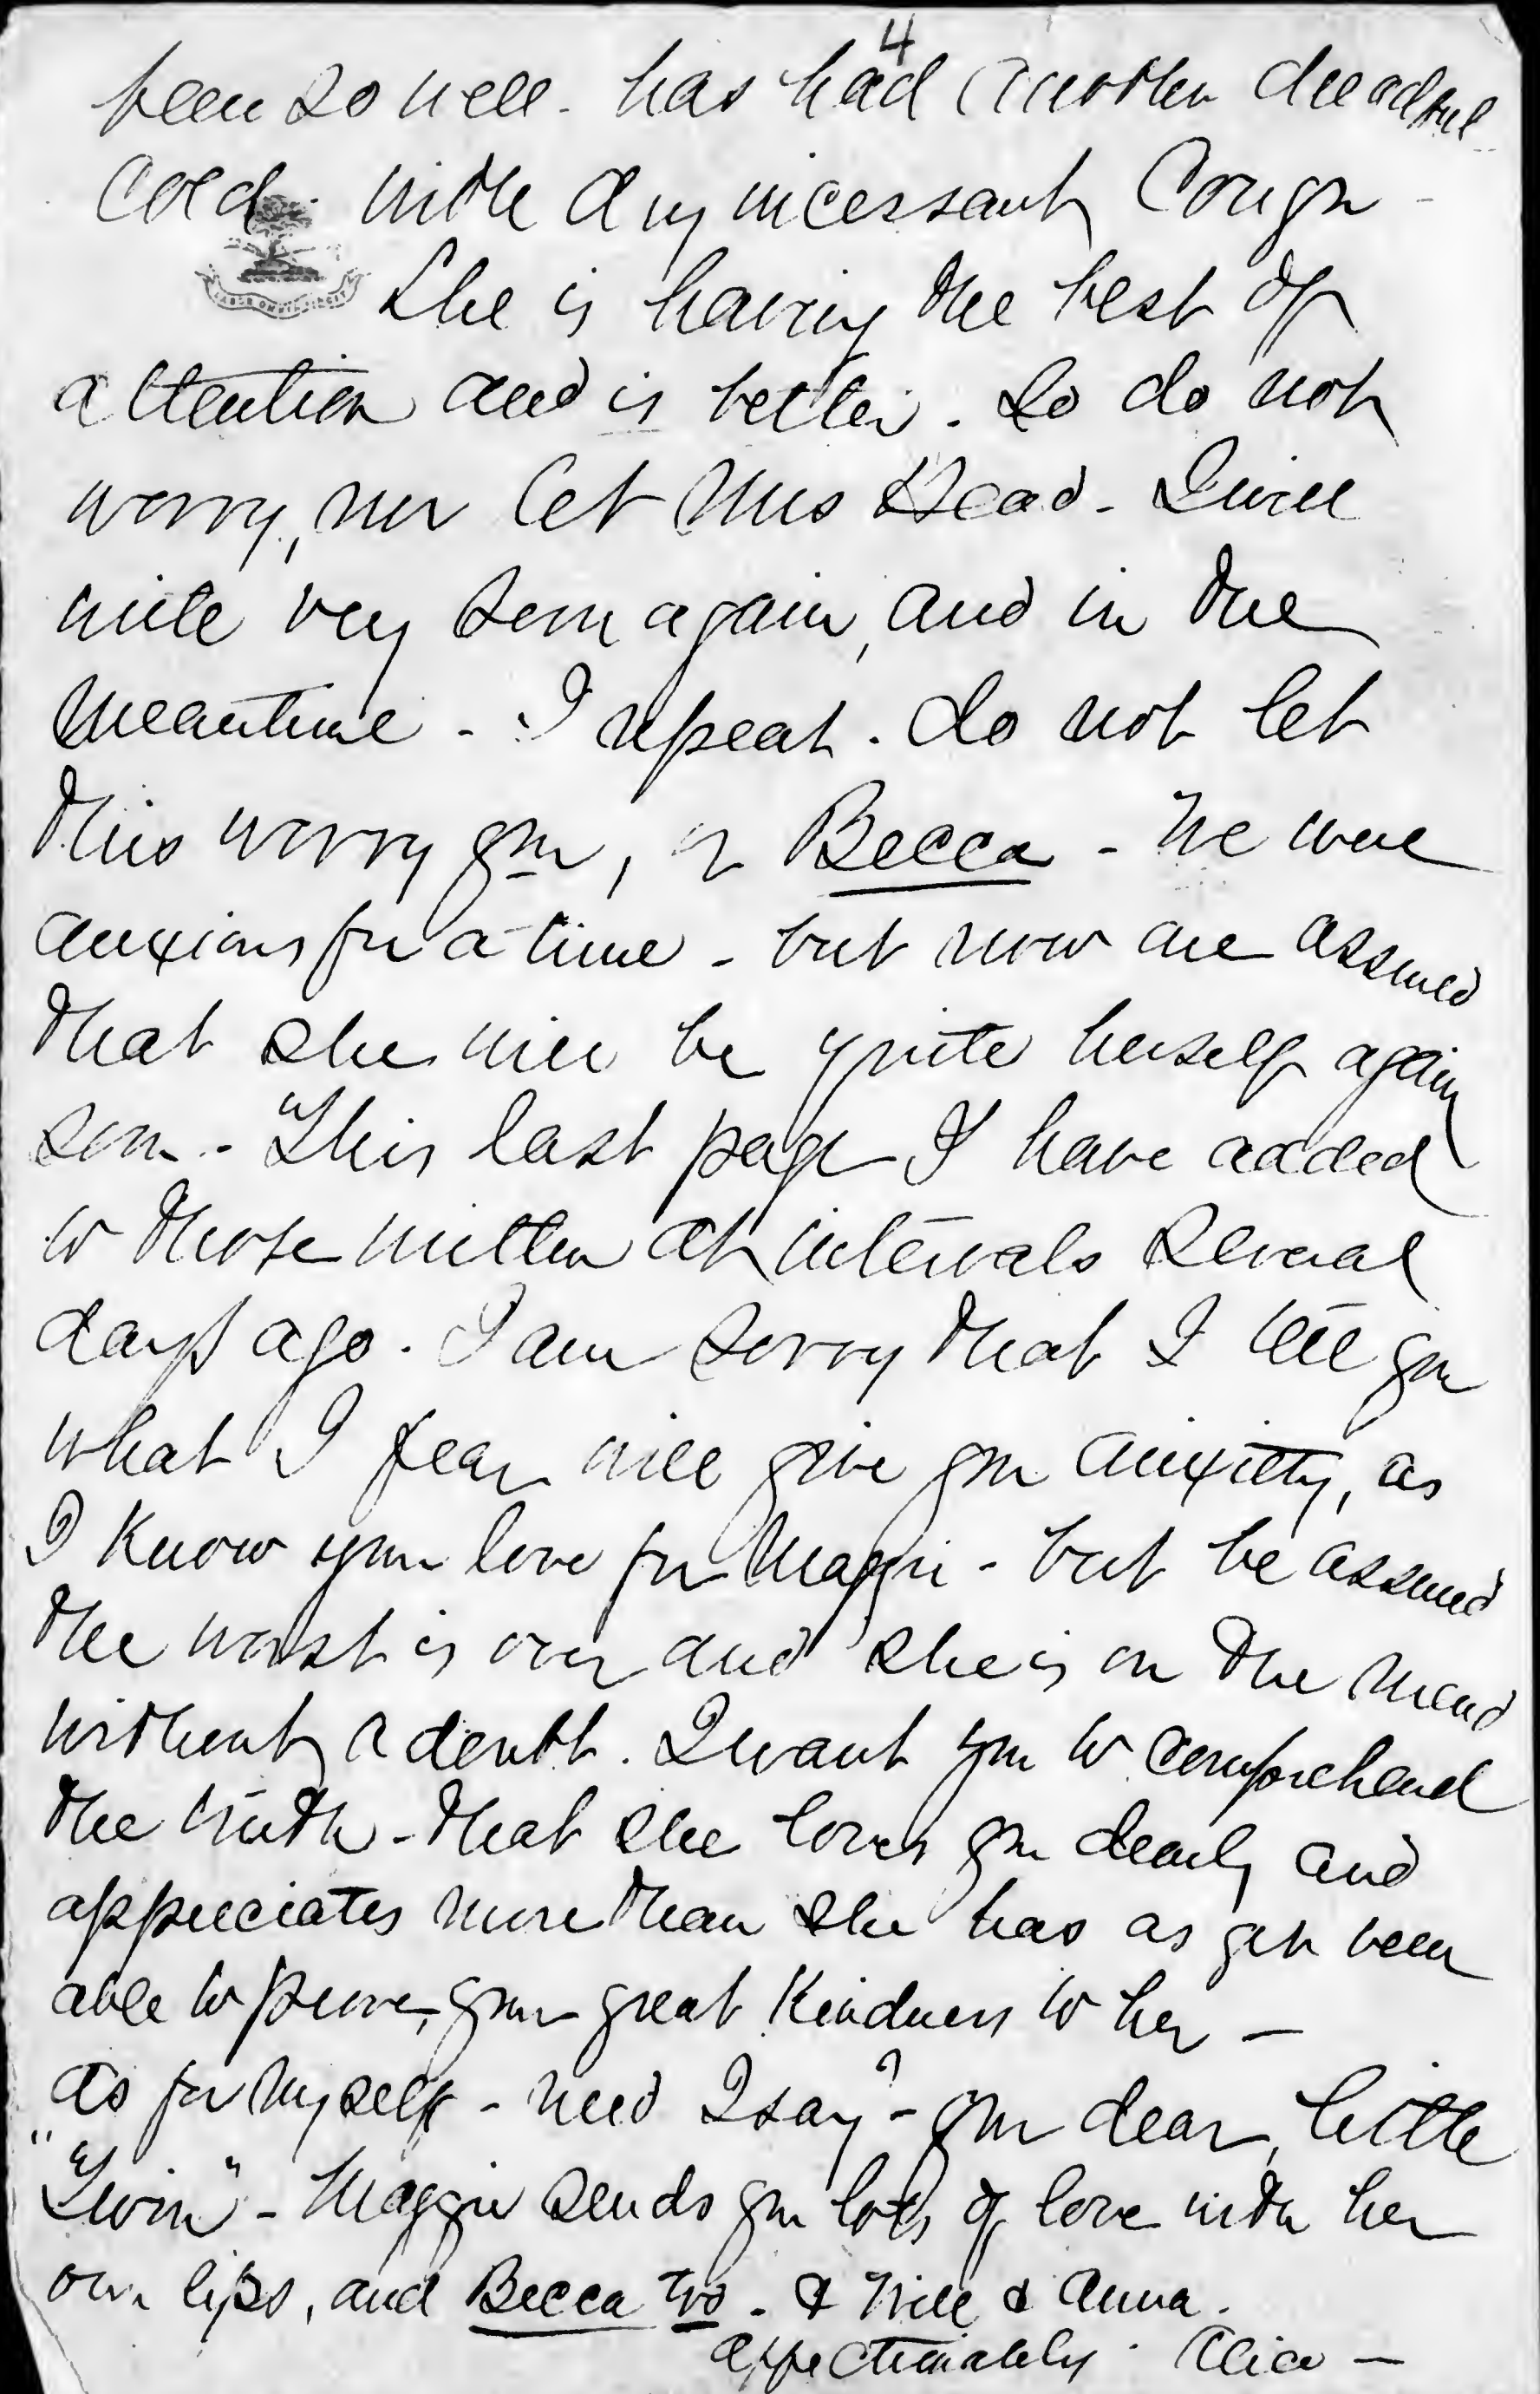 4
been so well - has had another dreadful
Cold - with an incessant Cough -
LABOR OMNIA VINCIT
She is having the best of
attention and is better - So do not
worry, nor let Mrs Head - I will
write very soon again, and in the
meantime - I repeat - do not let
this worry you, or Becca - We were
anxious for a time - but now are assured
that she will be quite herself again
soon - This last page I have added
to those written at intervals several
days ago. I am sorry that I tell you
what I fear will give you anxiety, as
I know your love for Maggie - but be assured
the worst is over and she is on the mend
without a doubt. I want you to comprehend
the truth - that she loves you dearly and
appreciates more than she has as yet been
able to prove, your great Kindness to her -
As for myself - need I say? - your dear, little
"Twin" - Maggie sends you lots of love with her
own lips, and Becca too - & Will & Anna.
Affectionately - Alice -